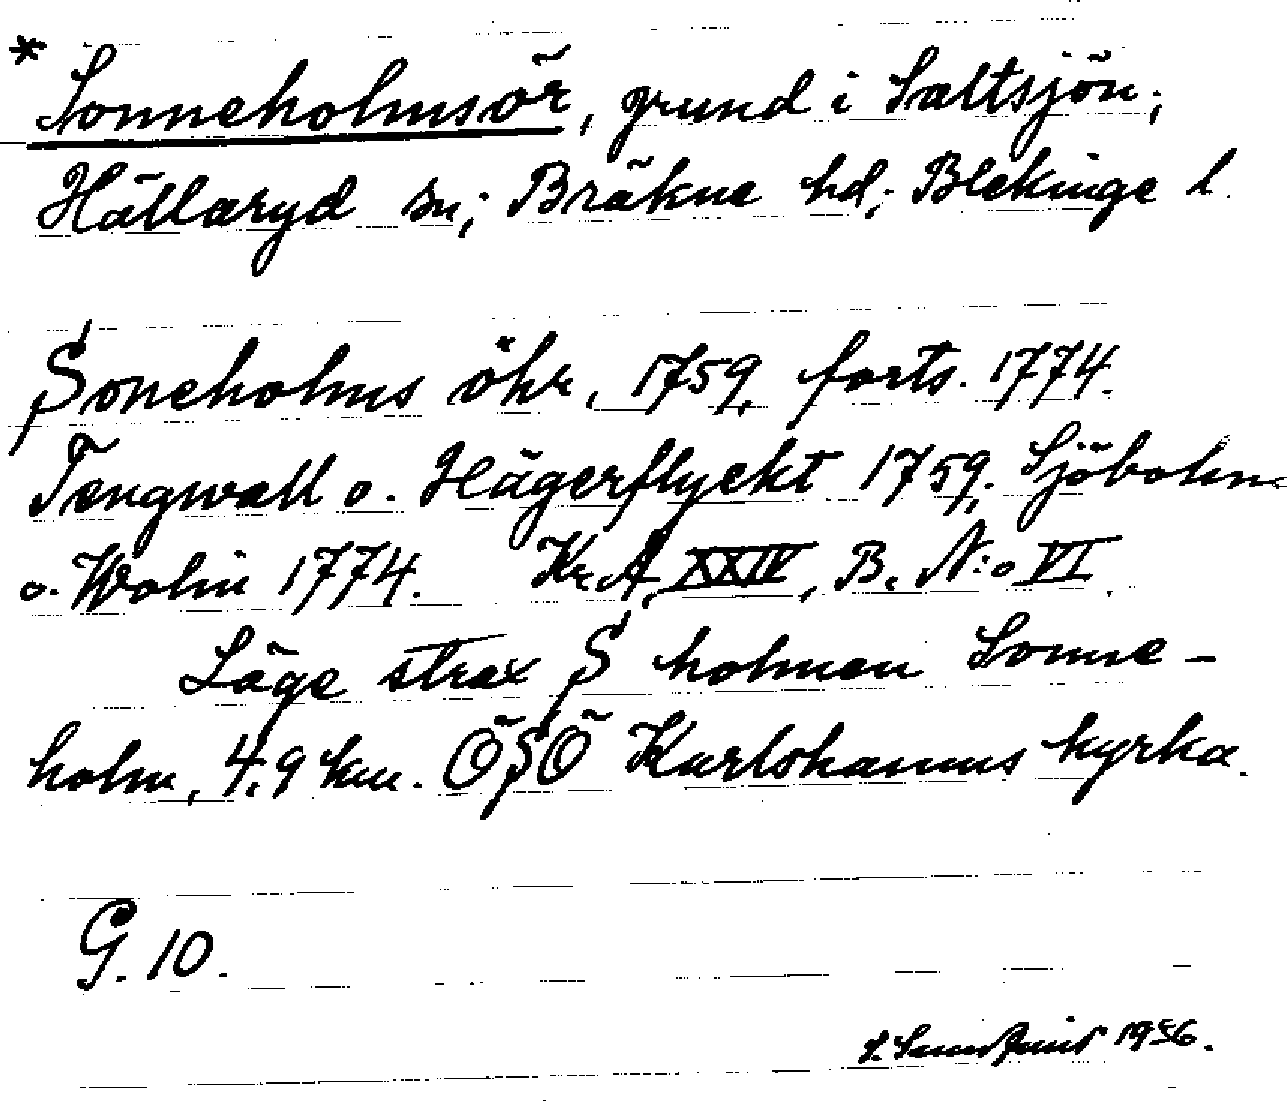 * Sonneholmsör, grund i Saltsjön;
Hällaryd sn; Bräkne hd; Blekinge l.
Soneholms öhr, 1759, forts. 1774.
Tengwall o. Hägerflyckt 1759. Sjöbohm
o. Wolin 1774. Kr.A. XXIV, B. N:o VI.
Läge strax S holmen Sonne-
holm, 4.9 km. ÖSÖ Karlshamns kyrka.
G. 10.
1956.